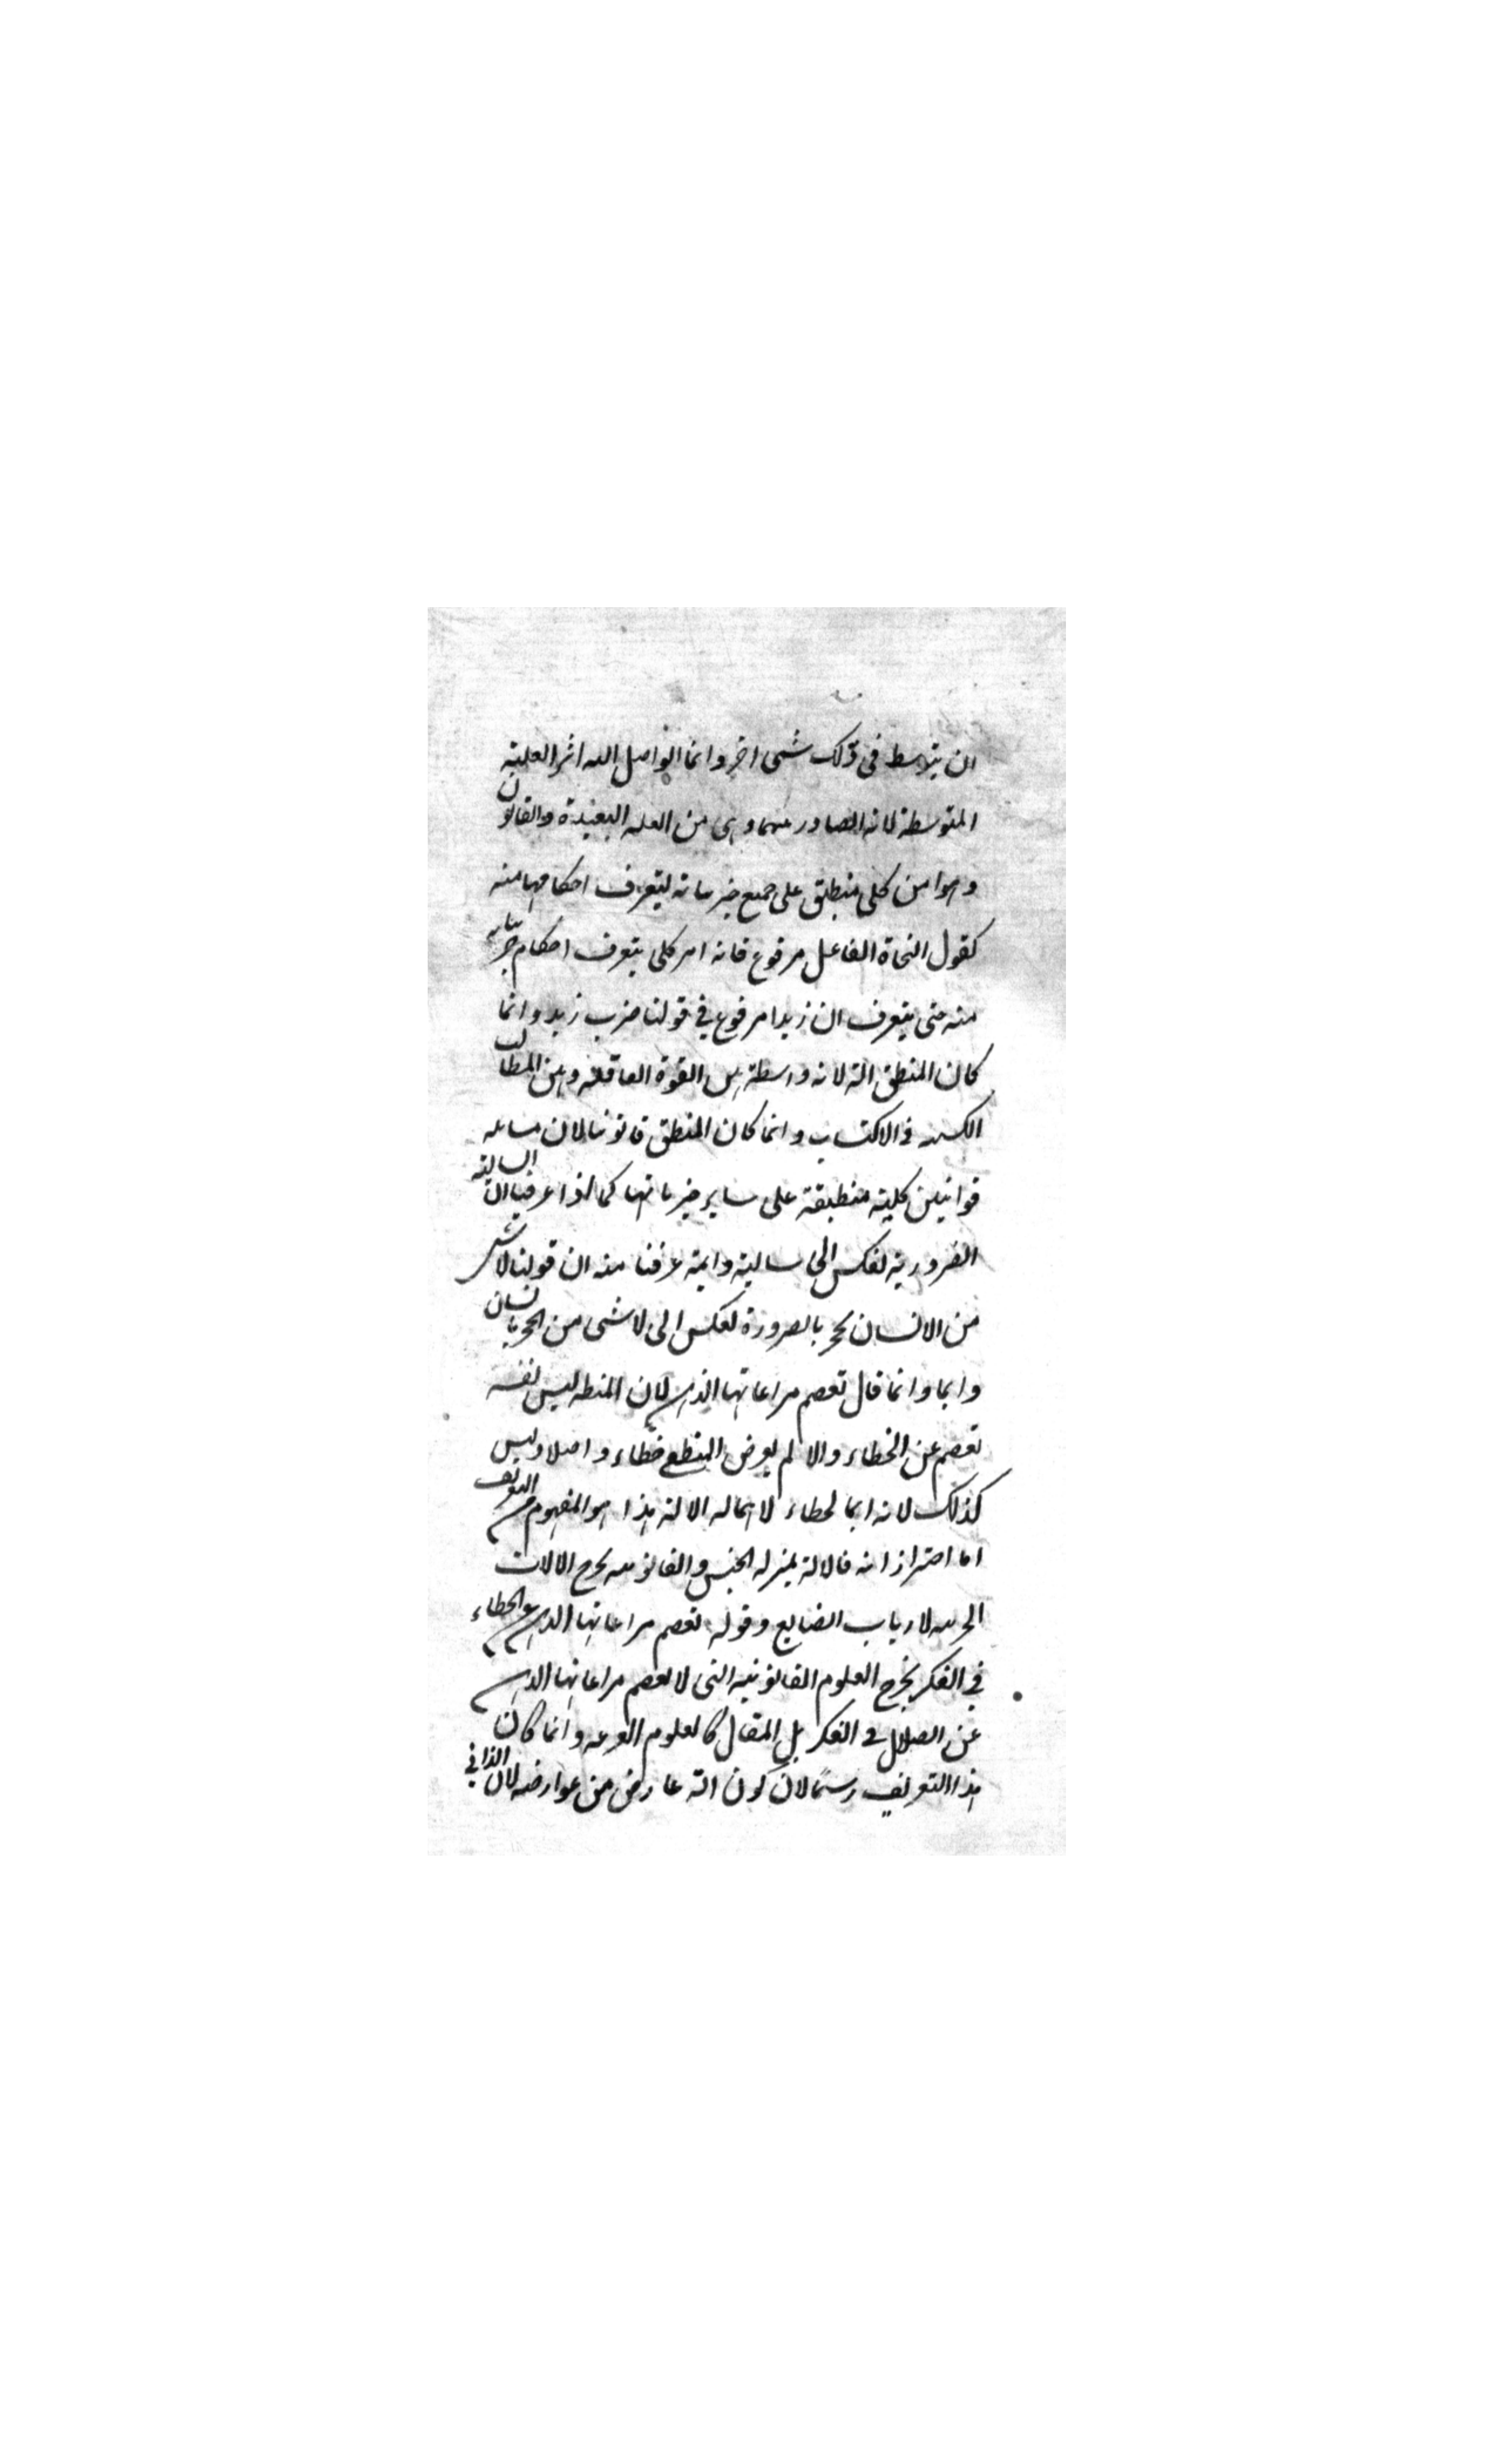 ان يتوسط فى ذلك شىء اخر وانما الواصل اليه اثر العلية
المتوسطة لانه الصادر منها وهى من العلة البعيدة والقانون
وهو امر كلى منطبق على جميع جزئياته ليتعرف احكامها منه
كقول النحاة الفاعل مرفوع فانه امر كلى يتعرف احكام جزئياته
منه حتى يتعرف ان زيدا مرفوع في قولنا ضرب زيد وانما
كان المنطق الة لانه واسطة بين القوة العاقلة وبين المطالب
الكسبية في الاكتساب وانما كان المنطق قانونيا لان مسائله
قوانين كلية منطبقة على ساير جزئياتها كما اذا عرفنا ان السالبة
الضرورية تنعكس الى سالبة دايمة عرفنا منه ان قولنا لا شىء
من الانسان بحجر بالضرورة تنعكس الى لا شىء من الحجر بانسان
دايما وانما قال تعصم مراعاتها الذهن لان المنطق ليس نفسه
تعصم عن الخطاء والا لم يعرض للمنطقي خطاء اصلا وليس
كذلك لانه ربما يخطاء لاهماله الالة هذا هو المفهوم من التعريف
اما احترازاته فالالة بمنزلة الجنس والقانونية يخرج الالات
الجزئية لارباب الصنايع وقوله تعصم مراعاتها الذهن عن الخطاء
في الفكر يخرج العلوم القانونية التى لا تعصم مراعاتها الذهن
عن الضلال في الفكر بل المقال كالعلوم العربية وانما كان
هذا التعريف رسمًا لان كونه الة عارض من عوارضه لان الذاتي